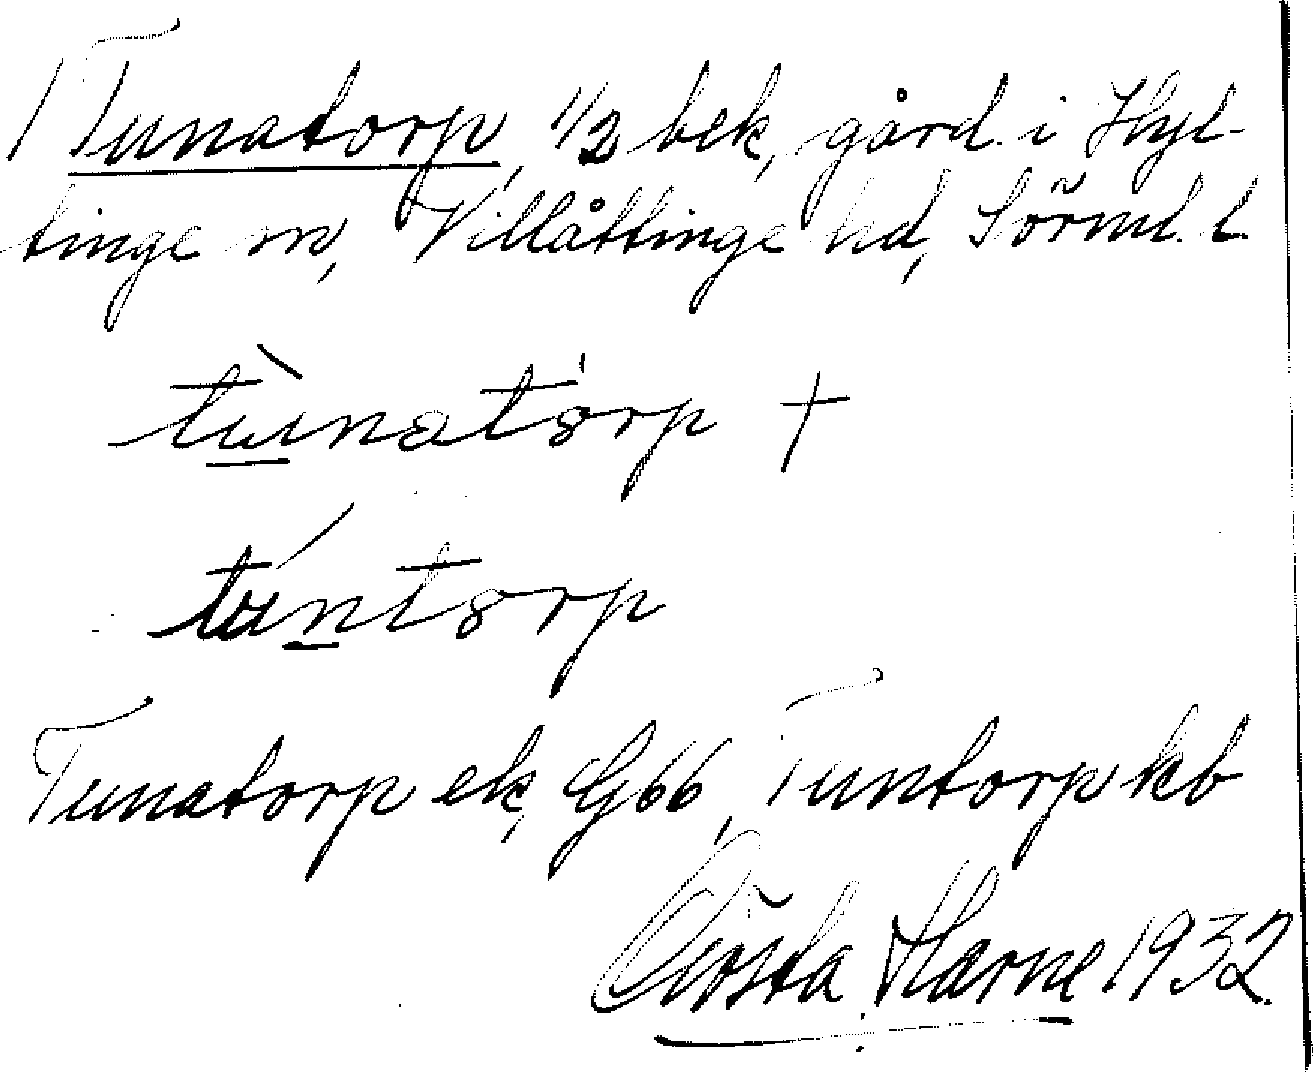 Tunatorp, 1/2 bek, gård i Hyl-
tinge sn, Villåttinge hd, Sörml. l.
tùnatórp †
túntorp
Tunatorp ek, G66, Tuntorp kb
Gösta Harne 1932.